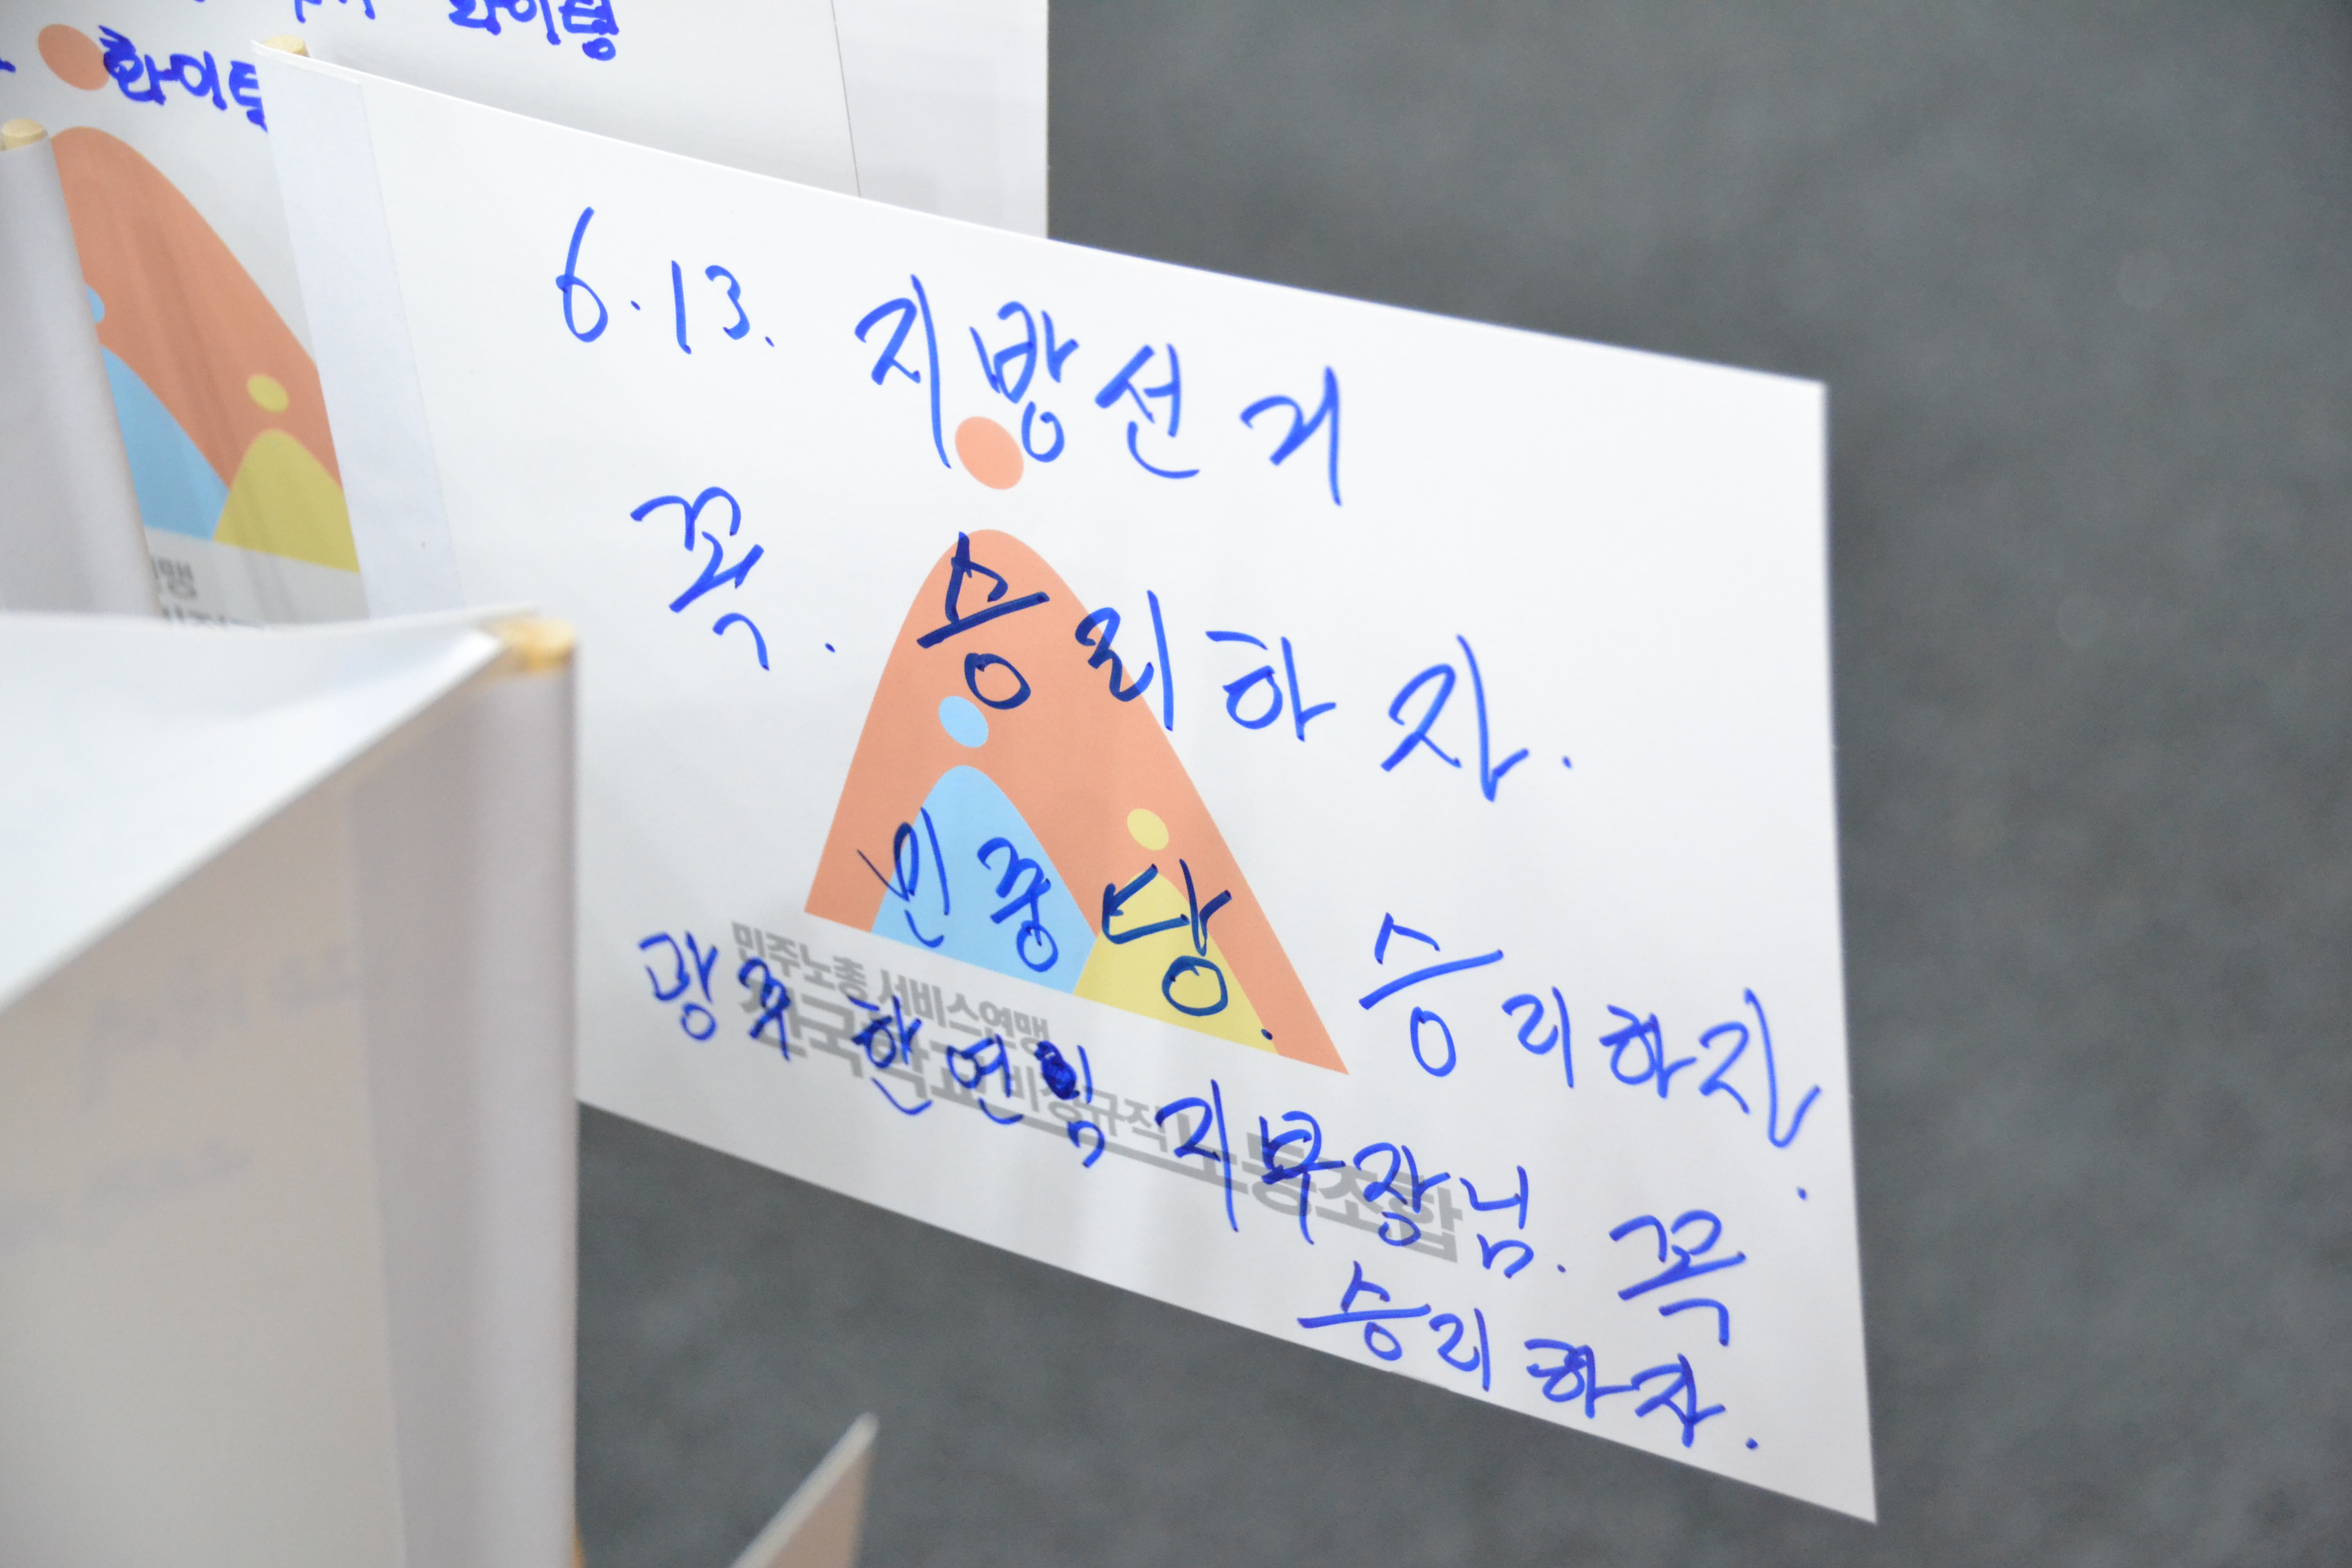 화이팅
화이팅
6.13. 지방선거
꼭. 승리하자.
민중당. 승리하자.
민주노총 서비스연맹
전국학교비정규직노동조합
광주 한연임 지부장님. 꼭
승리하자.